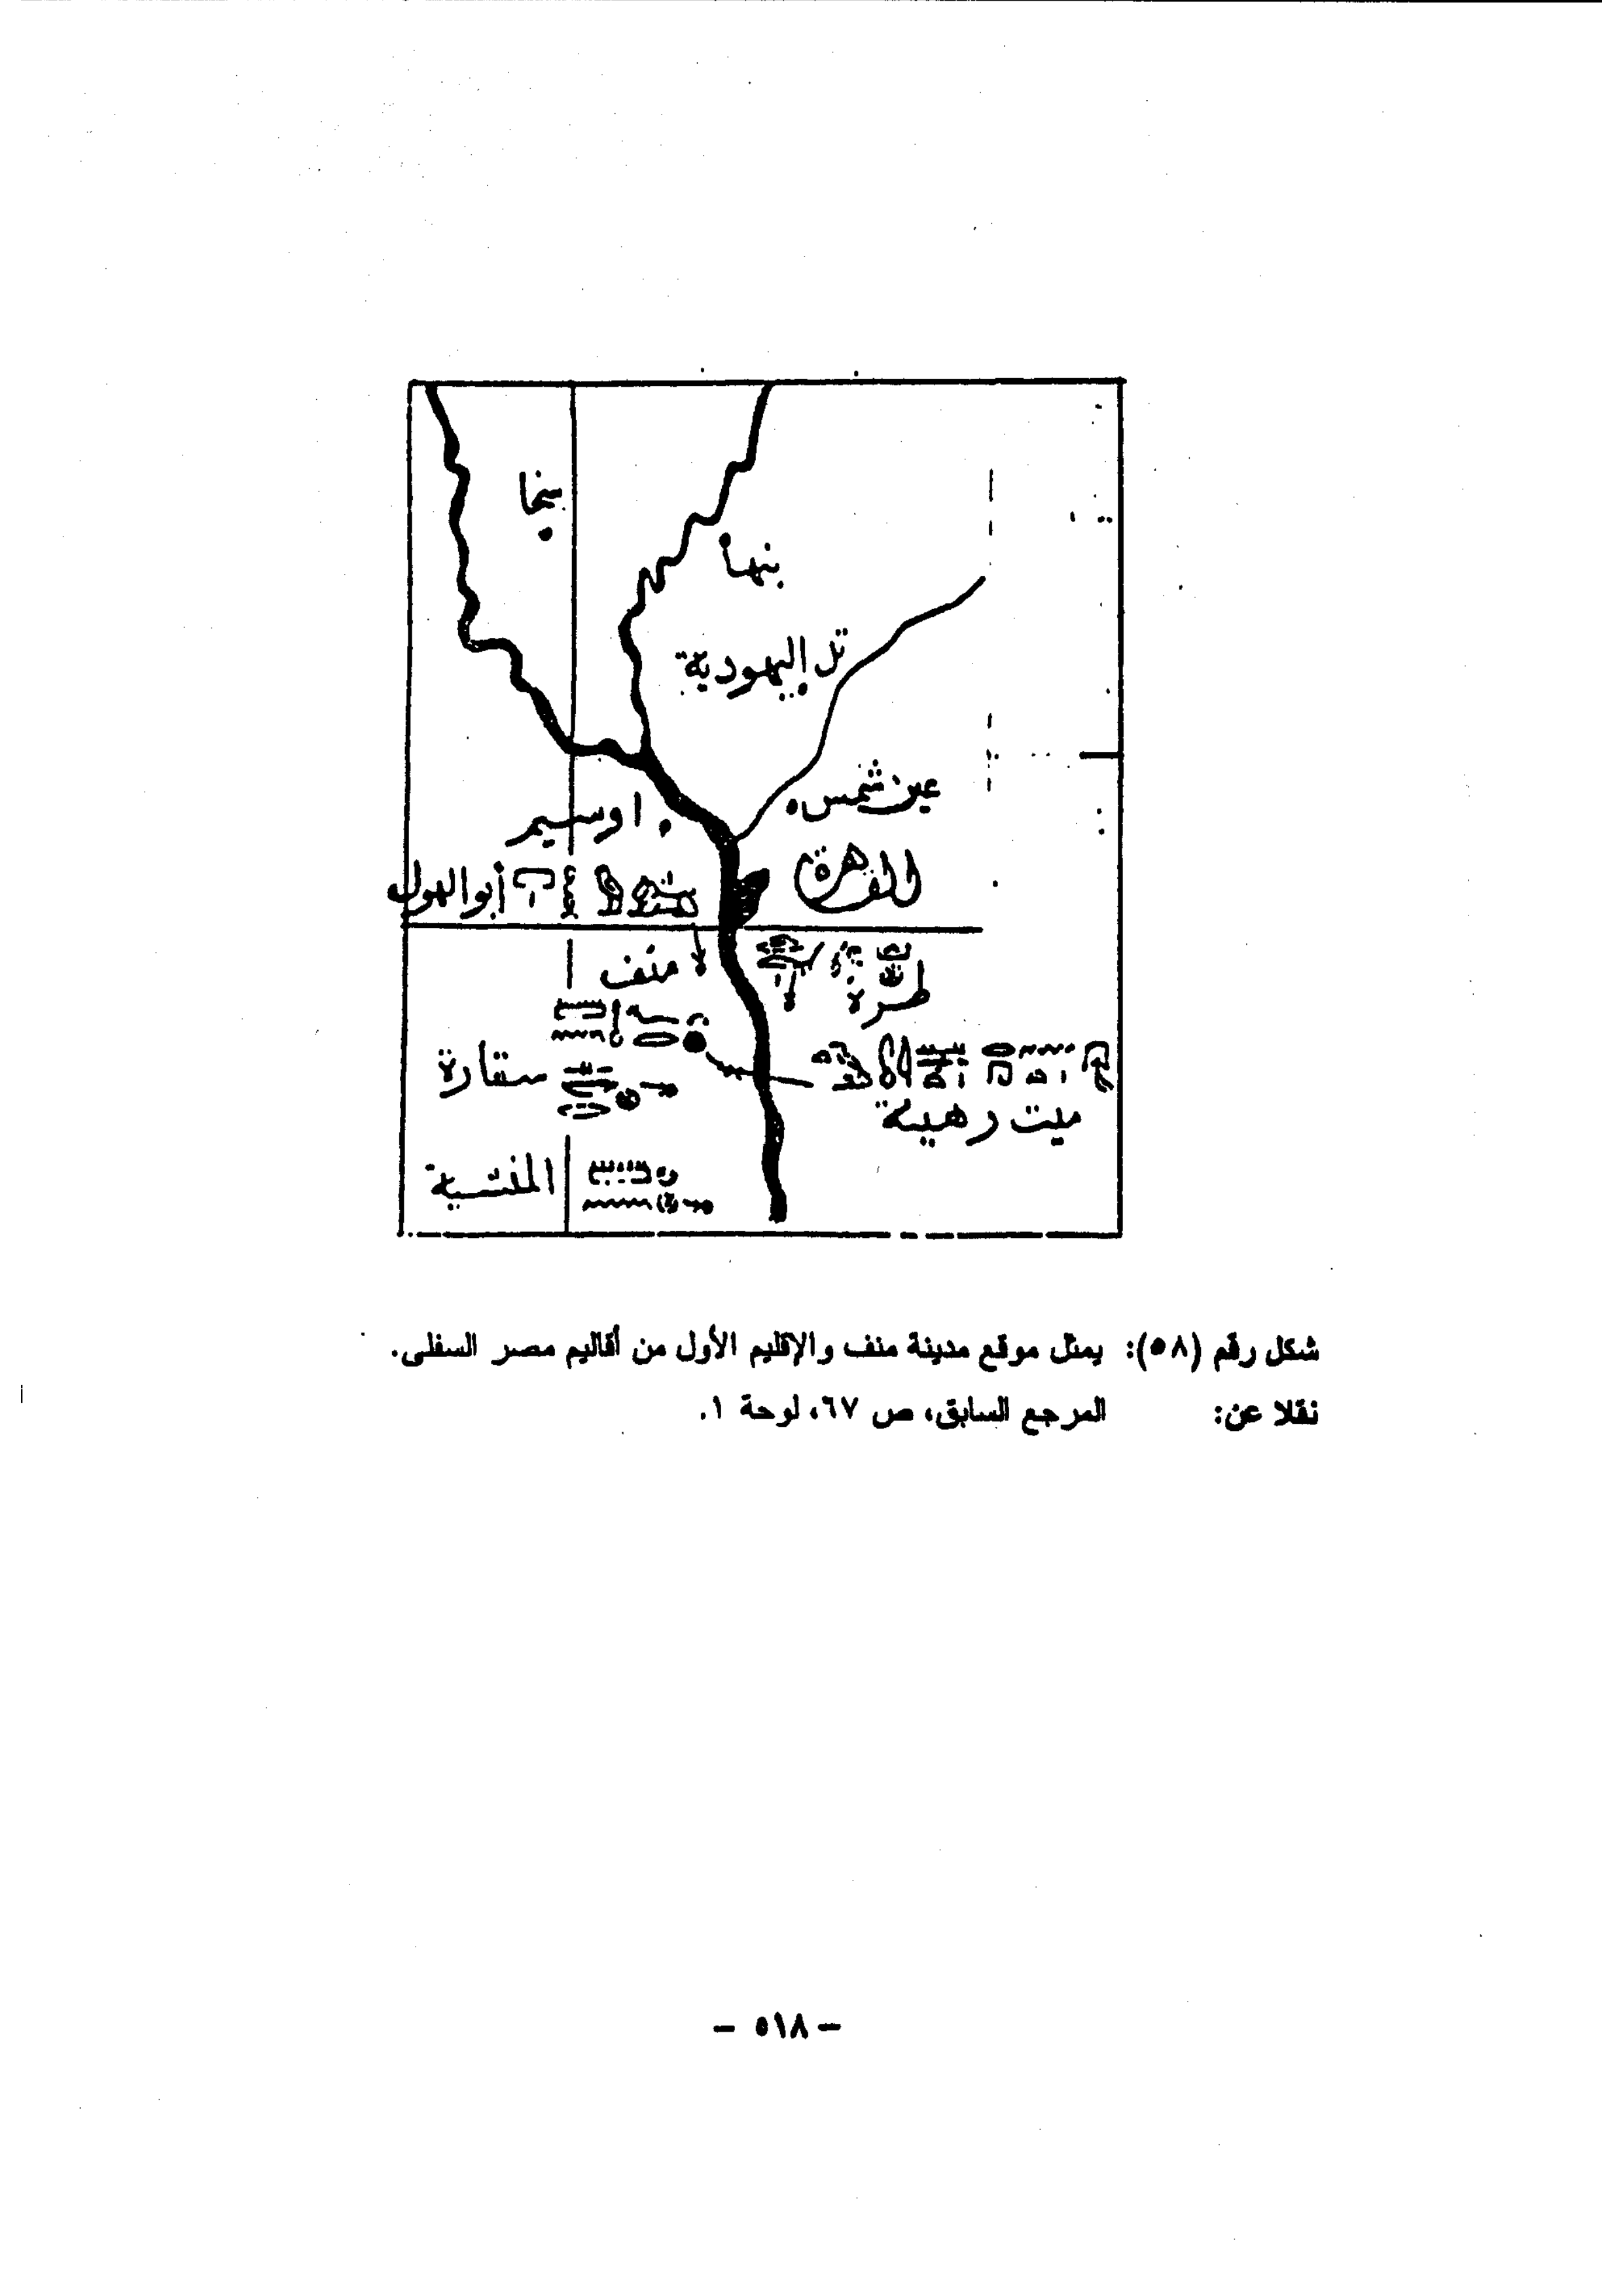 بنها
تل اليهودية
عين شمس
اوسيم
القاهرة
أبو الهول
منف
طرة
سقارة
ميت رهينة
المنشية
شكل رقم (٥٨): يمثل موقع مدينة منف والإقليم الأول من أقاليم مصر السفلى.
نقلا عن: المرجع السابق، ص ٦٧، لوحة ١.
- ٥١٨ -